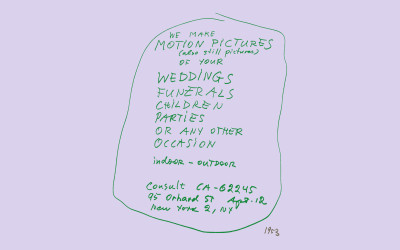 WE MAKE
MOTION PICTURES
(also still pictures)
OF YOUR
WEDDINGS
FUNERALS
CHILDREN
PARTIES
OR ANY OTHER
OCCASION
indoor - OUTDOOR
Consult CA-62245
95 Orchard St Apt-12
New York 2, NY
1953